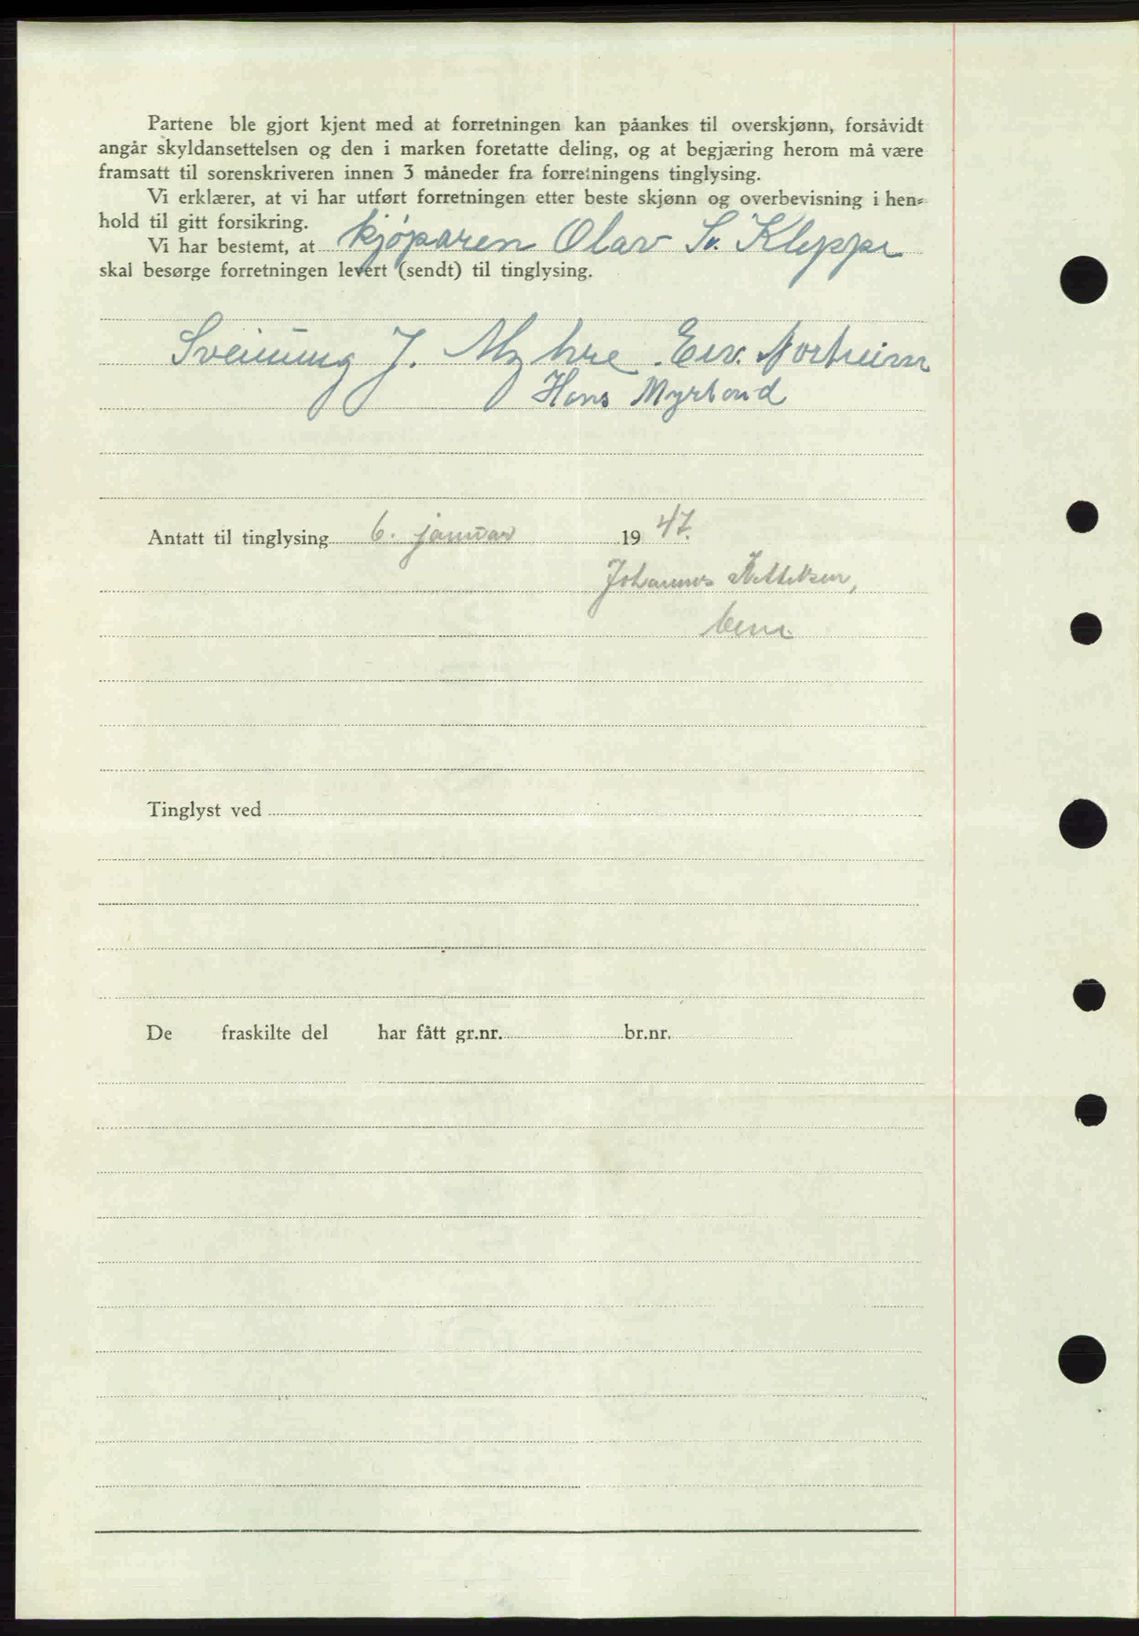 Partene ble gjort kjent med at forretningen kan påankes til overskjønn, forsåvidt
angår skyldansettelsen og den i marken foretatte deling, og at begjæring herom må være
framsatt til sorenskriveren innen 3 måneder fra forretningens tinglysing.
Vi erklærer, at vi har utført forretningen etter beste skjønn og overbevisning i hen-
hold til gitt forsikring.
Vi har bestemt, at kjøparen Olav Sv. Kleppe
skal besørge forretningen levert (sendt) til tinglysing.
Sveinung J. Myhre Eiv. Norheim
Hans Myrland
Antatt til tinglysing 6. januar 1947.
Johannes
Tinglyst ved
De fraskilte del har fått gr.nr. br.nr.